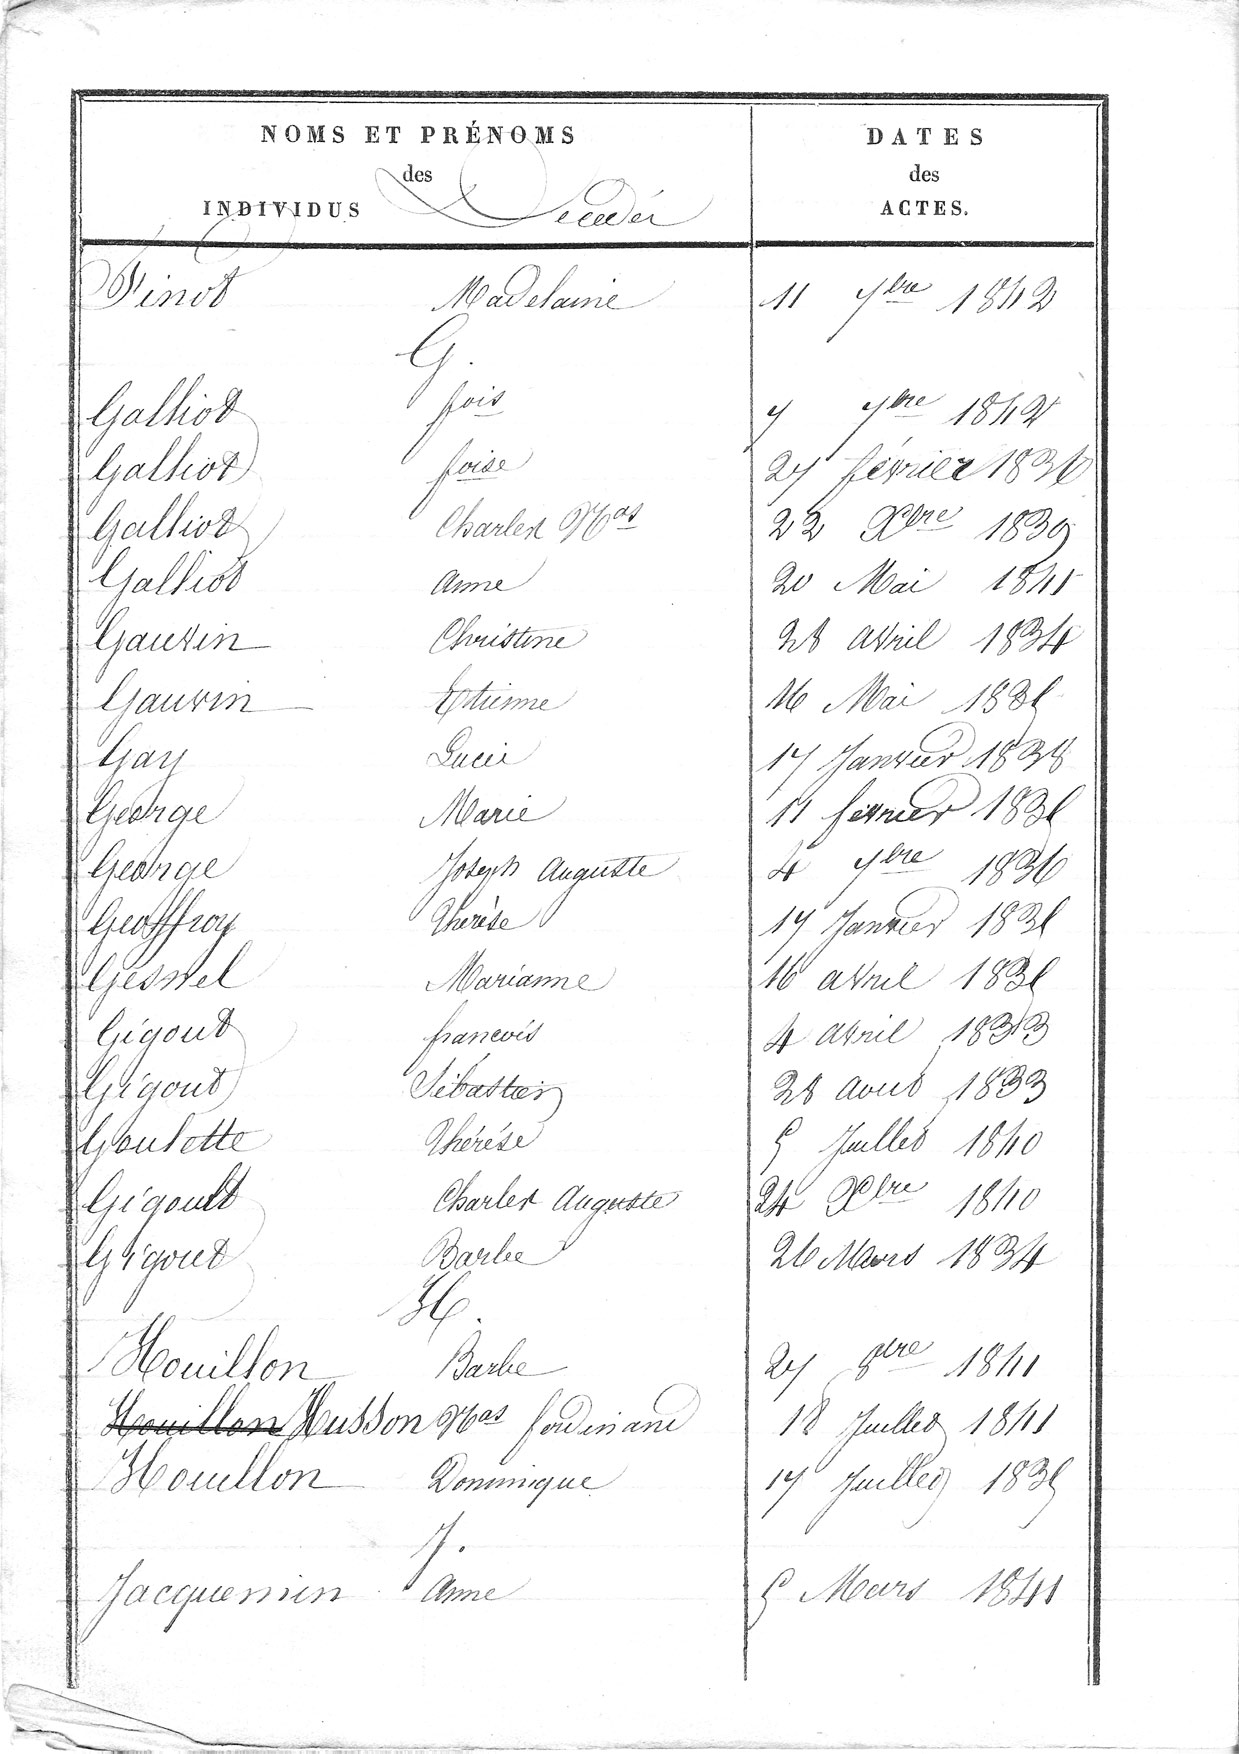 NOMS ET PRÉNOMS DATES
des des
INDIVIDUS Décédés ACTES.
Finot Madelaine 11 7bre 1842
G.
Galliot fois 7 7bre 1842
Galliot foise 27 février 1836
Galliot Charles Nas 22 Xbre 1839
Galliot Anne 20 Mai 1841
Gauvin Christine 28 avril 1834
Gauvin Etienne 16 Mai 1835
Gay Lucie 17 Janvier 1838
George Marie 11 fevrier 1835
George Joseph Auguste 4 7bre 1836
Geoffroy Thérèse 17 Janvier 1835
Gesnel Marianne 16 avril 1835
Gigout francois 4 avril 1833
Gigout Sébastien 28 aout 1833
Goulette Thérése 5 Juillet 1840
Gigoult Charles Auguste 24 Xbre 1840
Gigout Barbe 26 Mars 1834
H.
Houillon Barbe 27 8bre 1841
Houillon Husson Nas ferdinand 18 Juillet 1841
Houillon Dominique 17 Juillet 1835
J.
Jacquemin Anne 5 Mars 1841